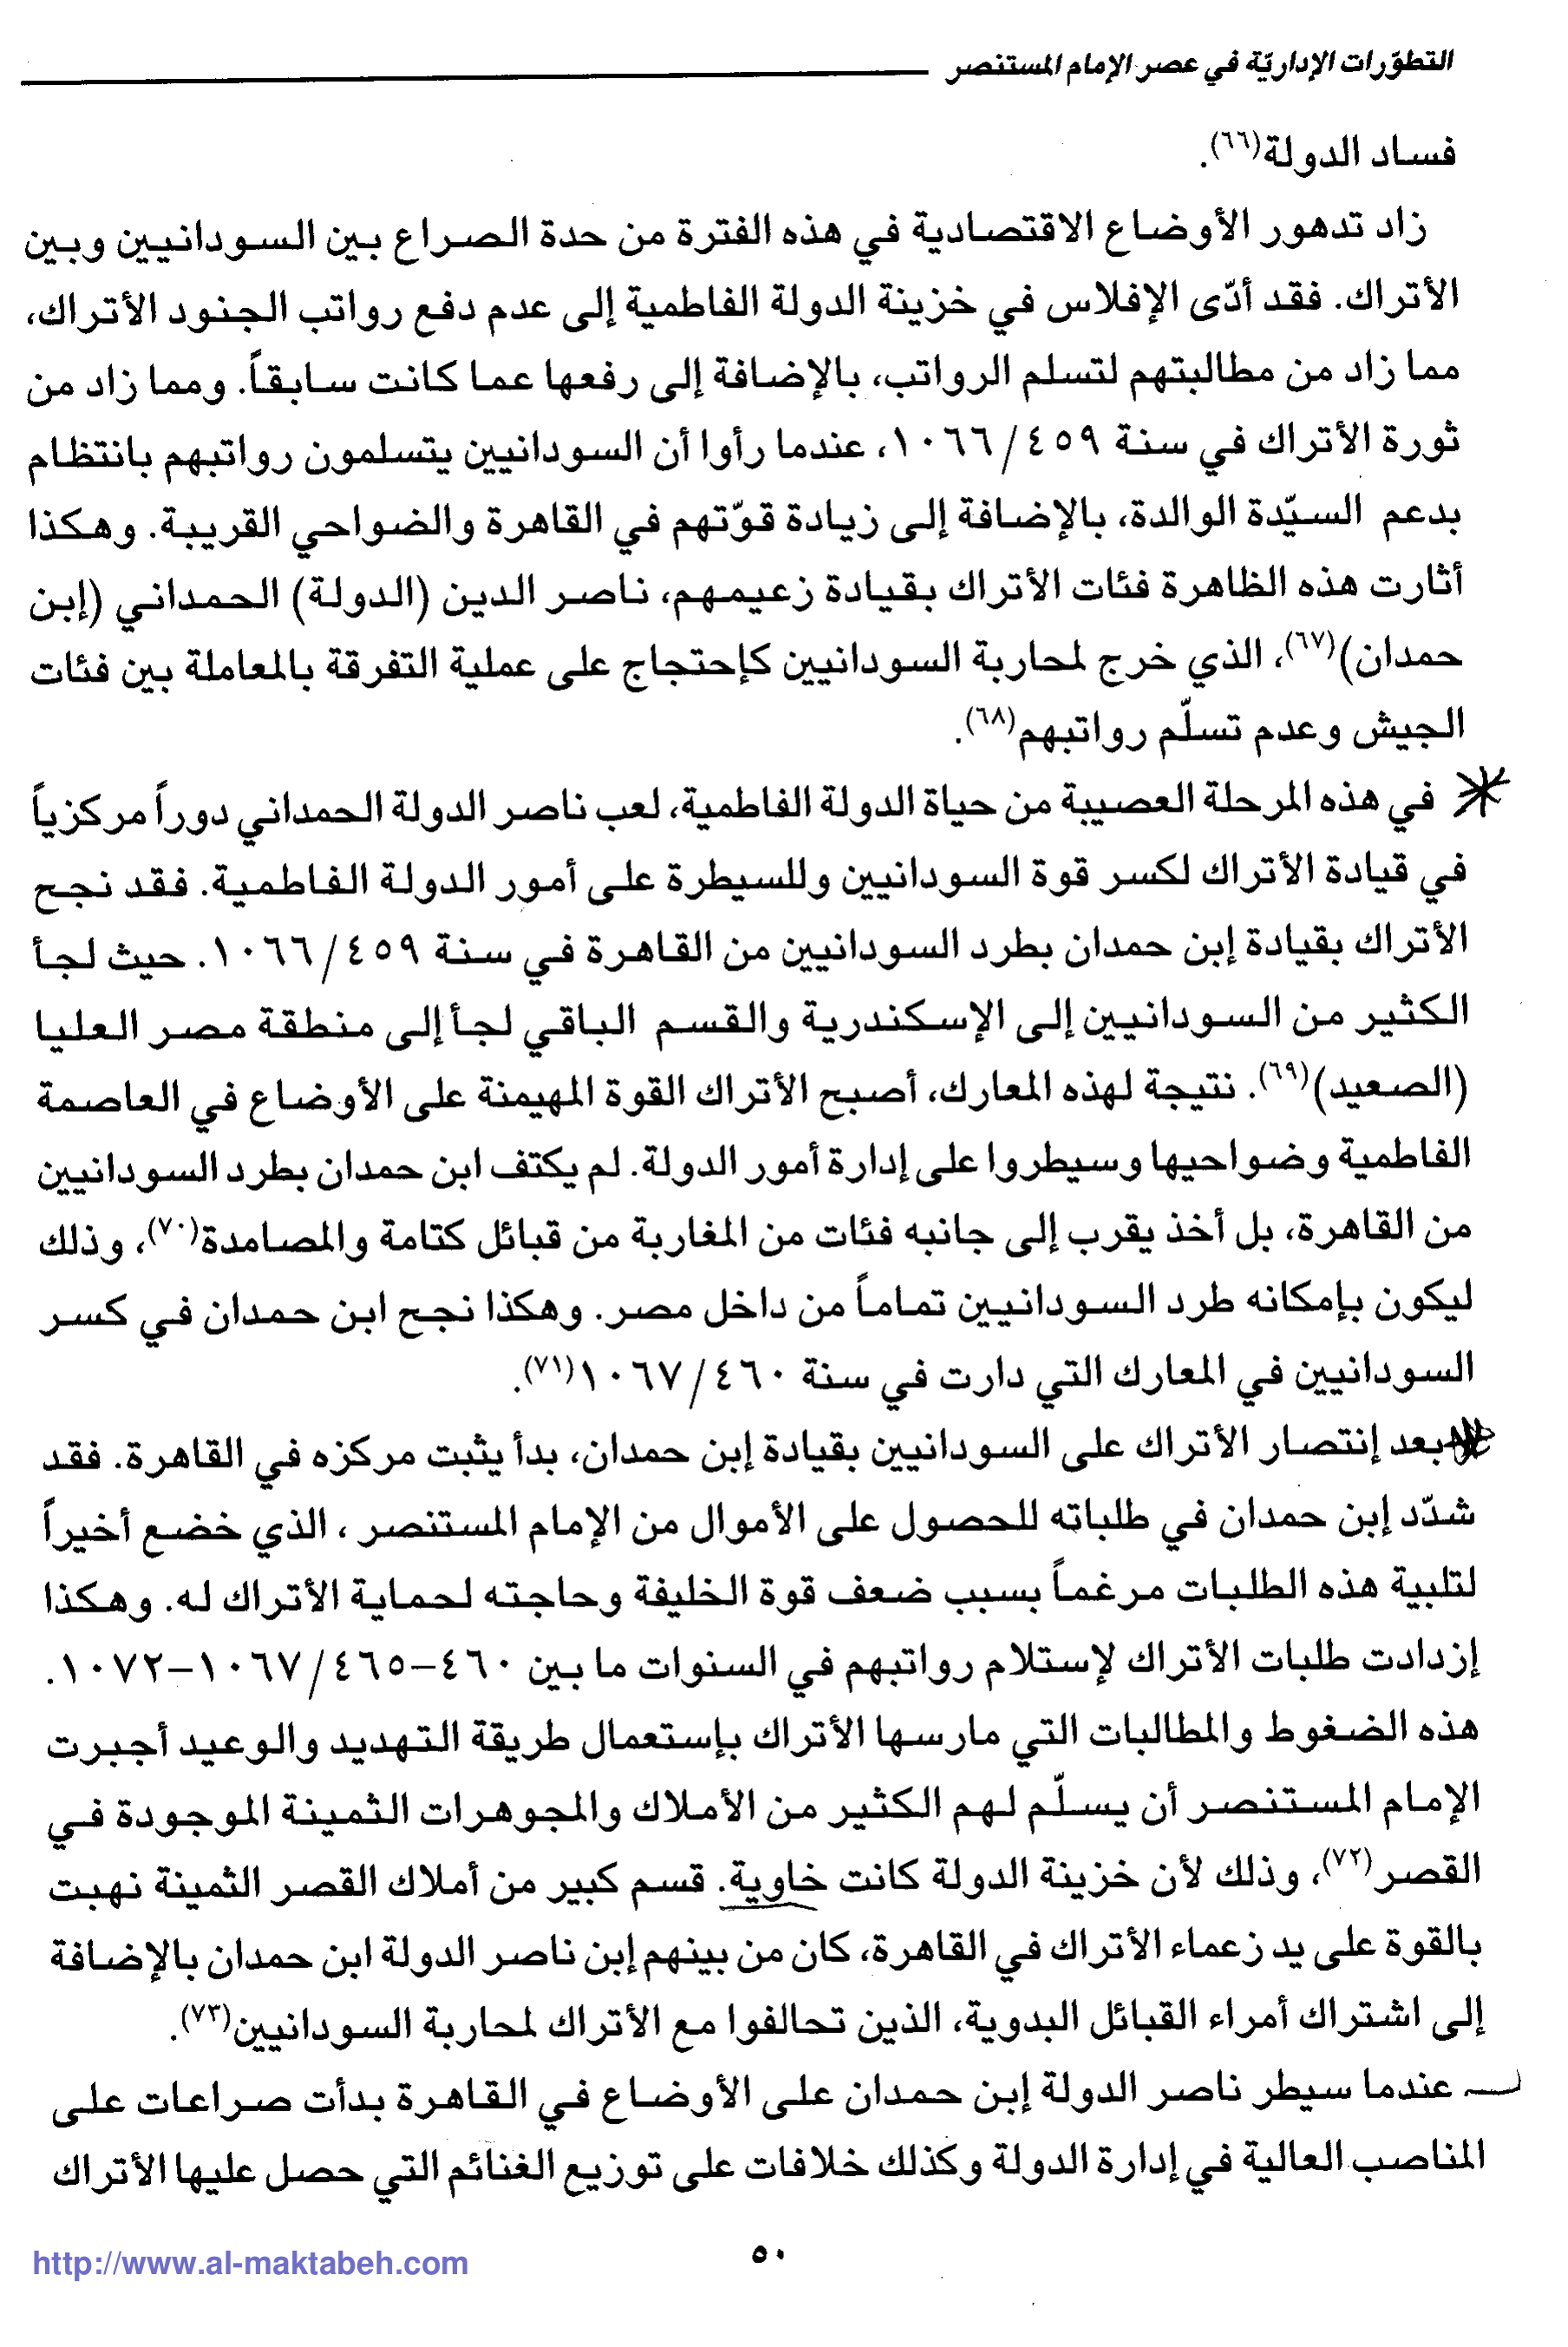 التطوّرات الإداريّة في عصر الإمام المستنصر
فساد الدولة(٦٦).
زاد تدهور الأوضاع الاقتصادية في هذه الفترة من حدة الصراع بين السودانيين وبين
الأتراك. فقد أدّى الإفلاس في خزينة الدولة الفاطمية إلى عدم دفع رواتب الجنود الأتراك،
مما زاد من مطالبتهم لتسلم الرواتب، بالإضافة إلى رفعها عما كانت سابقاً. ومما زاد من
ثورة الأتراك في سنة ٤٥٩/١٠٦٦، عندما رأوا أن السودانيين يتسلمون رواتبهم بانتظام
بدعم السيّدة الوالدة، بالإضافة إلى زيادة قوّتهم في القاهرة والضواحي القريبة. وهكذا
أثارت هذه الظاهرة فئات الأتراك بقيادة زعيمهم، ناصر الدين (الدولة) الحمداني (إبن
حمدان)(٦٧)، الذي خرج لمحاربة السودانيين كإحتجاج على عملية التفرقة بالمعاملة بين فئات
الجيش وعدم تسلّم رواتبهم(٦٨).
في هذه المرحلة العصيبة من حياة الدولة الفاطمية، لعب ناصر الدولة الحمداني دوراً مركزياً
في قيادة الأتراك لكسر قوة السودانيين وللسيطرة على أمور الدولة الفاطمية. فقد نجح
الأتراك بقيادة إبن حمدان بطرد السودانيين من القاهرة في سنة ٤٥٩/١٠٦٦. حيث لجأ
الكثير من السودانيين إلى الإسكندرية والقسم الباقي لجأ إلى منطقة مصر العليا
(الصعيد)(٦٩). نتيجة لهذه المعارك، أصبح الأتراك القوة المهيمنة على الأوضاع في العاصمة
الفاطمية وضواحيها وسيطروا على إدارة أمور الدولة. لم يكتف ابن حمدان بطرد السودانيين
من القاهرة، بل أخذ يقرب إلى جانبه فئات من المغاربة من قبائل كتامة والمصامدة(٧٠)، وذلك
ليكون بإمكانه طرد السودانيين تماماً من داخل مصر. وهكذا نجح ابن حمدان في كسر
السودانيين في المعارك التي دارت في سنة ٤٦٠/١٠٦٧(٧١).
بعد إنتصار الأتراك على السودانيين بقيادة إبن حمدان، بدأ يثبت مركزه في القاهرة. فقد
شدّد إبن حمدان في طلباته للحصول على الأموال من الإمام المستنصر ، الذي خضع أخيراً
لتلبية هذه الطلبات مرغماً بسبب ضعف قوة الخليفة وحاجته لحماية الأتراك له. وهكذا
إزدادت طلبات الأتراك لإستلام رواتبهم في السنوات ما بين ٤٦٠-٤٦٥/١٠٦٧-١٠٧٢.
هذه الضغوط والمطالبات التي مارسها الأتراك بإستعمال طريقة التهديد والوعيد أجبرت
الإمام المستنصر أن يسلّم لهم الكثير من الأملاك والمجوهرات الثمينة الموجودة في
القصر(٧٢)، وذلك لأن خزينة الدولة كانت خاوية. قسم كبير من أملاك القصر الثمينة نهبت
بالقوة على يد زعماء الأتراك في القاهرة، كان من بينهم إبن ناصر الدولة ابن حمدان بالإضافة
إلى اشتراك أمراء القبائل البدوية، الذين تحالفوا مع الأتراك لمحاربة السودانيين(٧٣).
عندما سيطر ناصر الدولة إبن حمدان على الأوضاع في القاهرة بدأت صراعات على
المناصب العالية في إدارة الدولة وكذلك خلافات على توزيع الغنائم التي حصل عليها الأتراك
٥٠
http://www.al-maktabeh.com